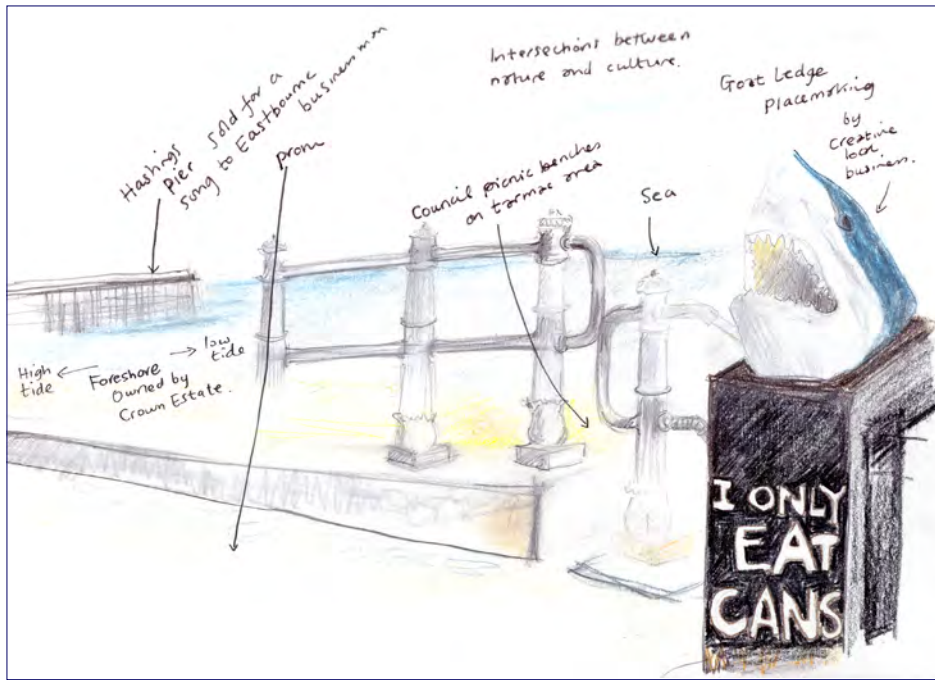 Hashings
pier sold for a
song to Eastbourne
businessman
prom
Intersections between
nature and culture.
Goat Ledge
placemaking
by
creative
local
business.
Council picnic benches
on tarmac area
Sea
High
tide
low
tide
Foreshore
Owned by
Crown Estate.
I ONLY
EAT
CANS